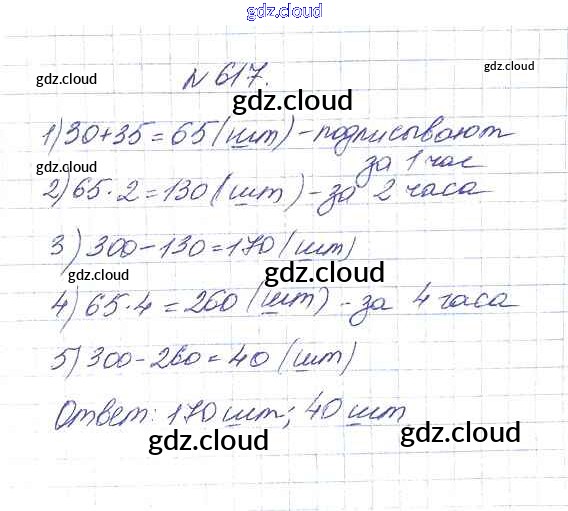 gdz.cloud
gdz.cloud gdz.cloud
№ 617.
gdz.cloud
1) 30+35=65 (шт) - подписывают
за 1 час
gdz.cloud
2) 65·2=130 (шт) - за 2 часа
3) 300-130=170 (шт)
gdz.cloud gdz.cloud
4) 65·4=260 (шт) - за 4 часа
5) 300-260=40 (шт)
Ответ: 170 шт; 40 шт
gdz.cloud gdz.cloud